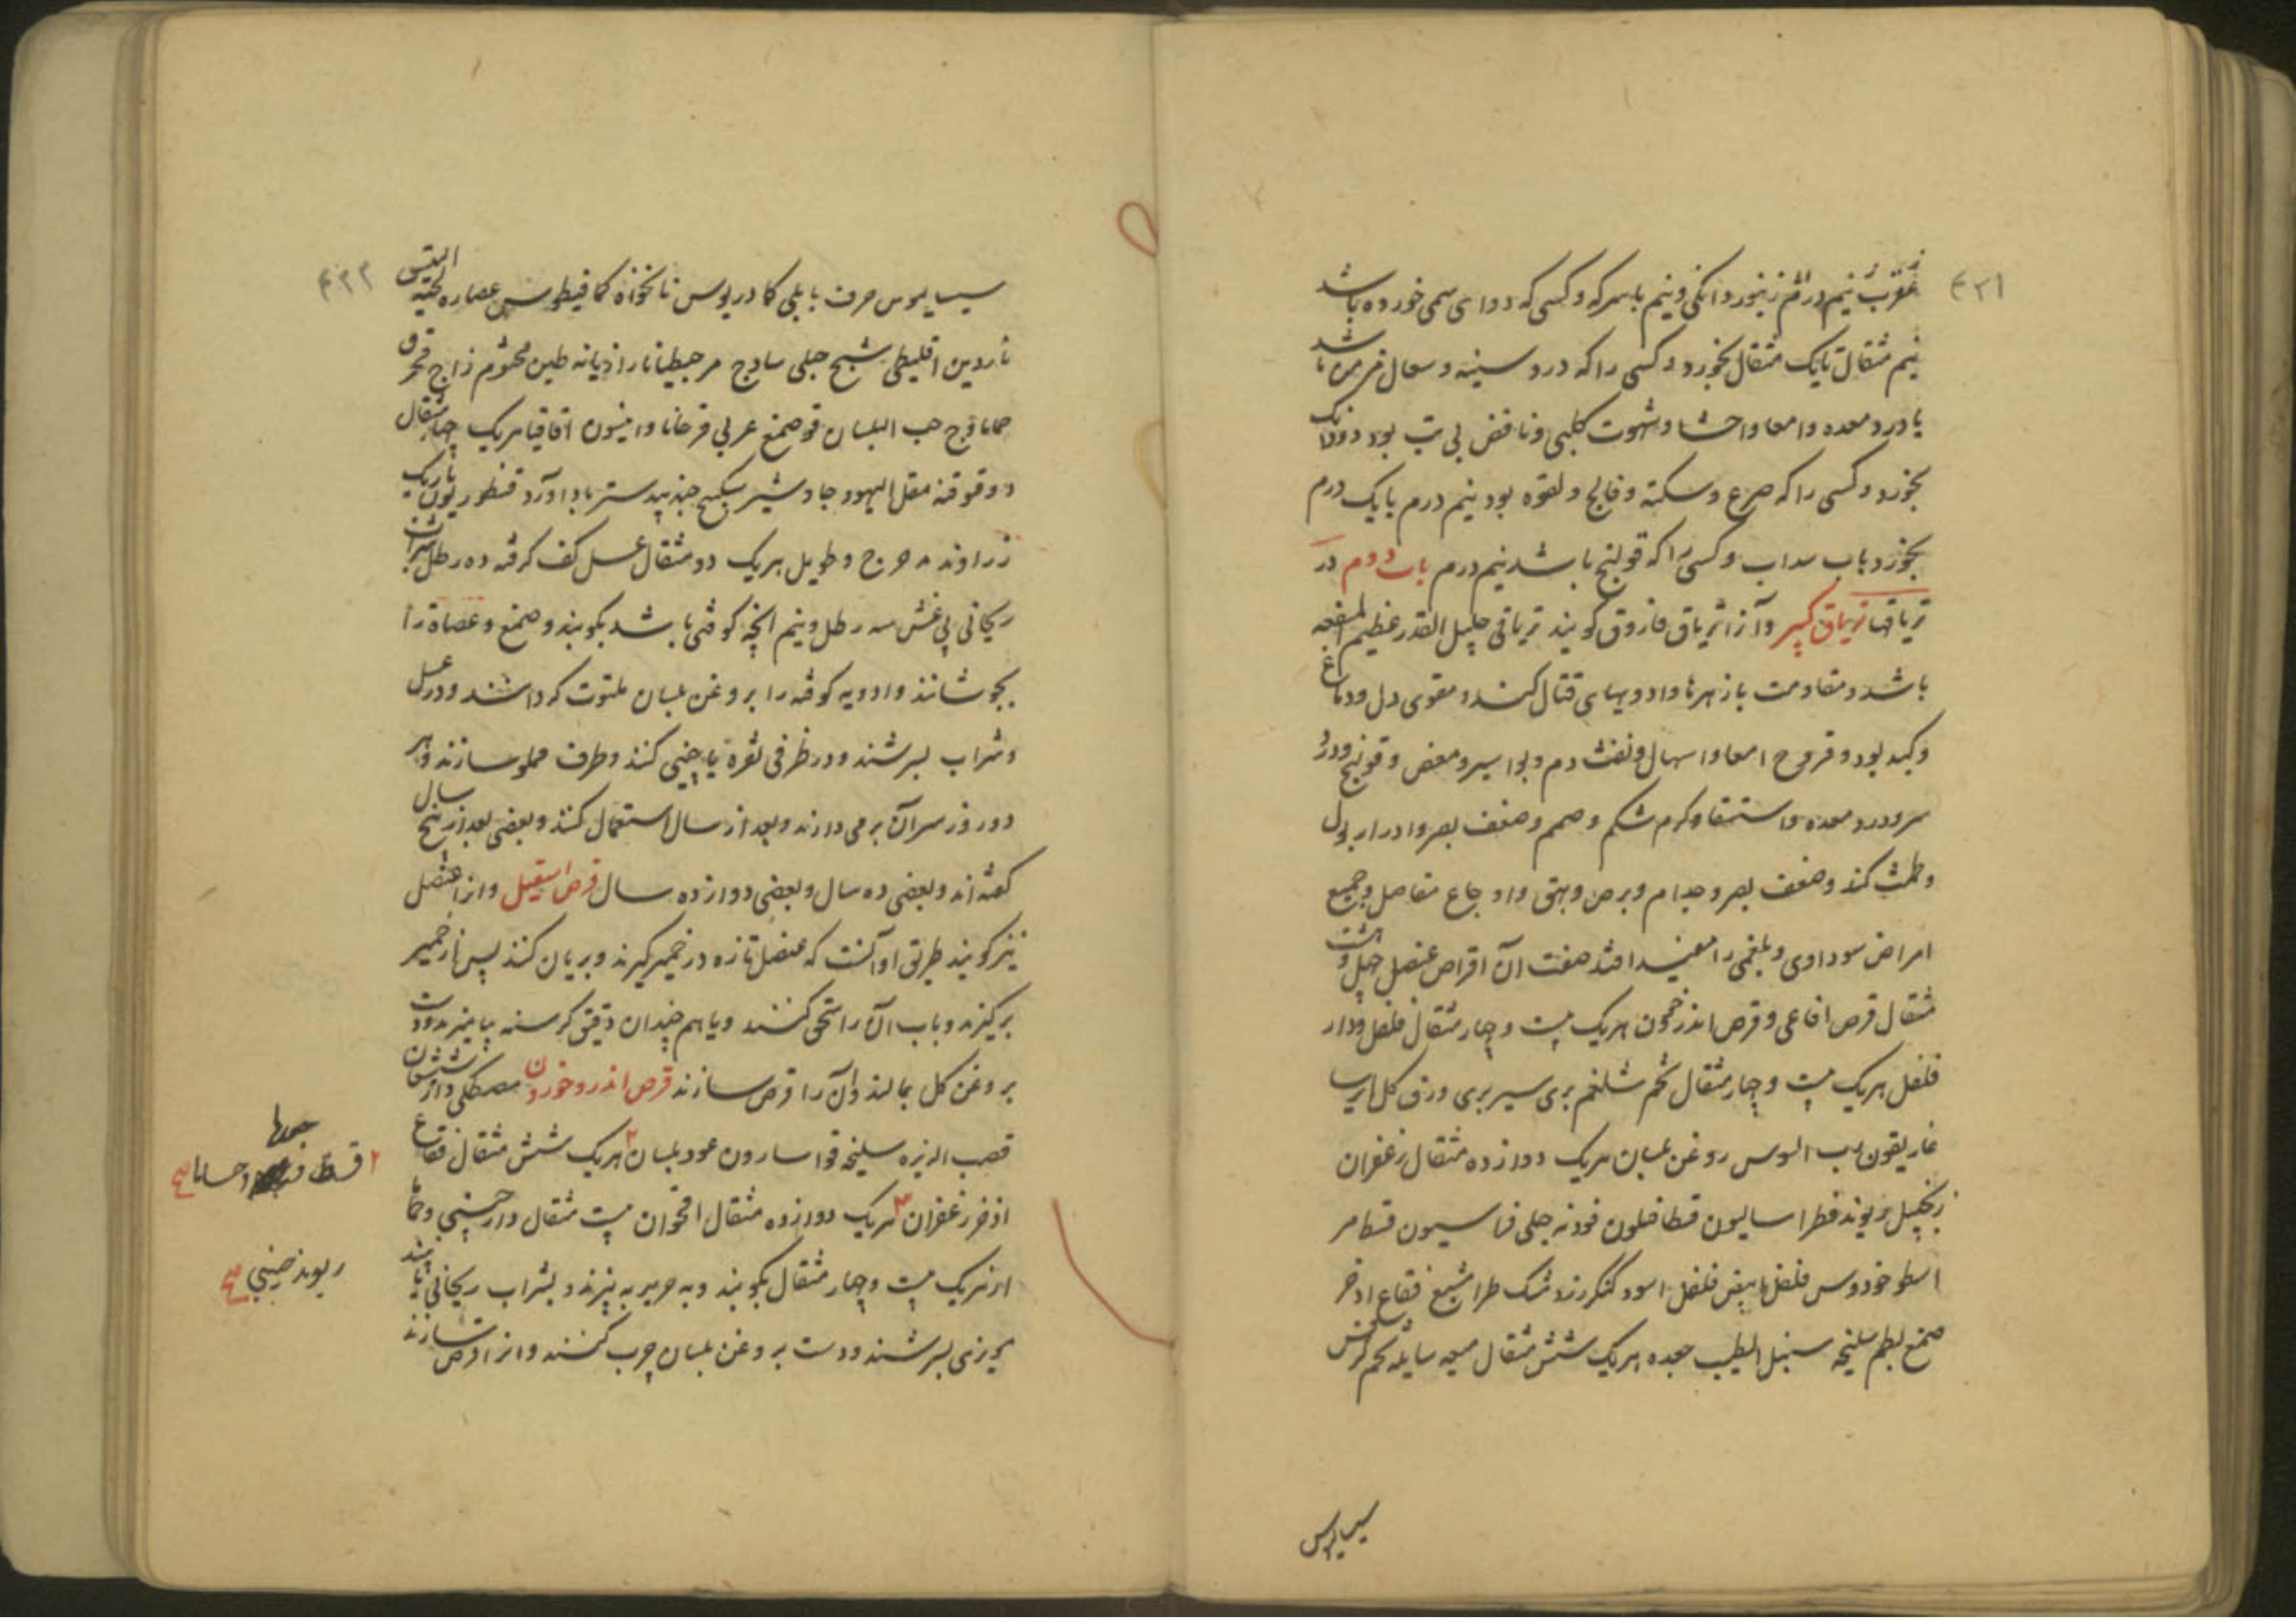 ۴۲۱
عقرب نیم درم زنبور دانکی و نیم با سرکه و کسی که دوای سمی خورده باشد
نیم مثقال تا یک مثقال بخورد و کسی را که درد سینه و سعال مزمن باشد
یا درد معده و امعا و احشا و شهوت کلبی و نافض بی تب بود دو دانک
بخورد و کسی را که صرع و سکته و فالج و لقوه بود نیم درم یا یک درم
بخورد بآب سداب و کسی را که قولنج باشد نیم درم باب دوم در
تریاقها تریاق کبیر و آنرا تریاق فاروق کویند تریاقی جلیل القدر عظیم المنفعه
باشد و مقاومت با زهرها و ادویهای قتال کند و مقوی دل و دماغ
و کبد بود و قروح امعا و اسهال و نفث دم و بواسیر و مغص و قولنج و درد
سر و درد معده و استسقا و کرم شکم و صمم و ضعف بصر و ادرار بول
و طمث کند و ضعف بصر و جذام و برص و بهق و اوجاع مفاصل و جمیع
امراض سوداوی و بلغمی را مفید افتد صفت آن اقراص عنصل چهل و هشت
مثقال قرص افاعی و قرص اندرخون هریک بیست و چهار مثقال فلفل و دار
فلفل هریک بیست و چهار مثقال تخم شلغم بری سیر بری ورق کل ایرسا
غاریقون رب السوس روغن بلسان هریک دوازده مثقال زعفران
زنجبیل ریوند فطراسالیون قطافلون فودنه جبلی فراسیون قسط مر
اسطوخودوس فلفل ابیض فلفل اسود کنکرزد مشک طرامشیع فقاع اذخر
صمغ بطم سلیخه سنبل الطیب جعده هریک شش مثقال میعه سایله تخم کرفس
سیسالیوس
۴۲۲
سیسالیوس حرف بابلی کمادریوس نانخواه کمافیطوس عصاره لحیه التیس
ناردین اقلیطی شیح جبلی سادج مر جنطیانا رازیانه طین مختوم زاج محرق
حماما وج حب البلسان فو صمغ عربی قردمانا و انیسون اقاقیا هریک چهار مثقال
دوقو قنه مقل الیهود جاوشیر سکبیج جندبیدستر باداورد قنطوریون باریک
زراوند مدحرج و طویل هریک دو مثقال عسل کف کرفته ده رطل شراب
ریحانی بی غش سه رطل و نیم انچه کوفتنی باشد بکوبند و صمغ و عصاره را
بجوشانند و ادویه کوفته را بروغن بلسان ملتوت کرداشند و در عسل
و شراب بسرشند و در ظرفی نقره یا چینی کنند و ظرف مملو سازند و هر
دو روز سر آن برمی دارند و بعد از سال استعمال کنند و بعضی بعد از پنج سال
کفته اند و بعضی ده سال و بعضی دوازده سال قرص اسقیل و انرا عنصل
نیز کویند طریق او آنست که عنصل تازه در خمیر کیرند و بریان کنند پس از خمیر
برکیرند و باب آن را سحق کنند و با هم چندان دقیق کرسنه بیامیزند و دست
بروغن کل بمالند و آن را قرص سازند قرص اندروخورون مصطکی دار شیشعان
قصب الذریره سلیخه فو اسارون عود بلسان ۲ هریک شش مثقال فقاع
اذخر زعفران ۳ هریک دوازده مثقال اقحوان بیست مثقال دارچینی و حماما
از هریک بیست و چهار مثقال بکوبند و به حریر به بیزند و بشراب ریحانی یا میبه
یا جزی بسرشند و دست بروغن بلسان چرب کنند و انرا قرص سازند
۲ قسط
ریوند چینی صح